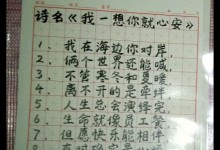 诗名《我一想你就心安》
1、我在海边你对岸,
2、俩个世界还能喊,
3、不管寒冬和夏暖,
4、离不开的是牵绊,
5、人生总会演绎完,
6、生命就像员工餐,
7、但愿快乐能相伴,
8、